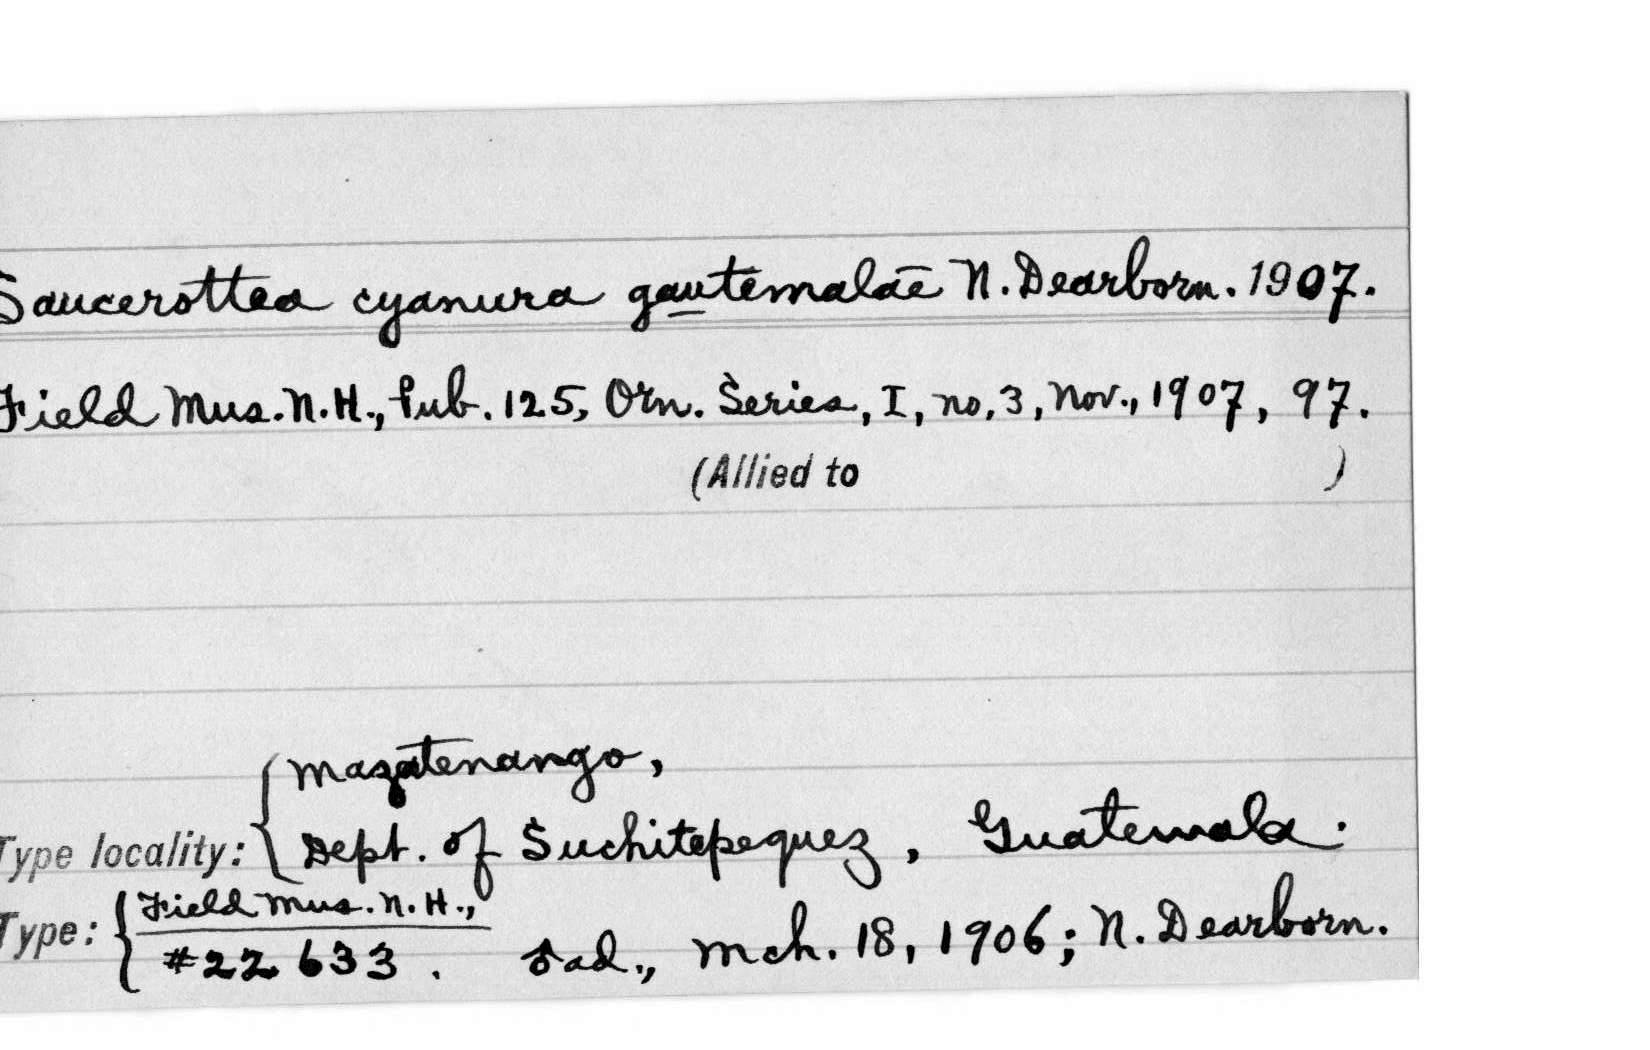 Saucerottea cyanura gautemalae N. Dearborn. 1907.
Field Mus. N. H., Pub. 125, Orn. Series, I, no. 3, Nov., 1907, 97.
(Allied to )
Mazatenango,
Type locality: Dept. of Suchitepequez, Guatemala.
Type: Field Mus. N. H.,
#22633. ♂ ad., Mch. 18, 1906; N. Dearborn.